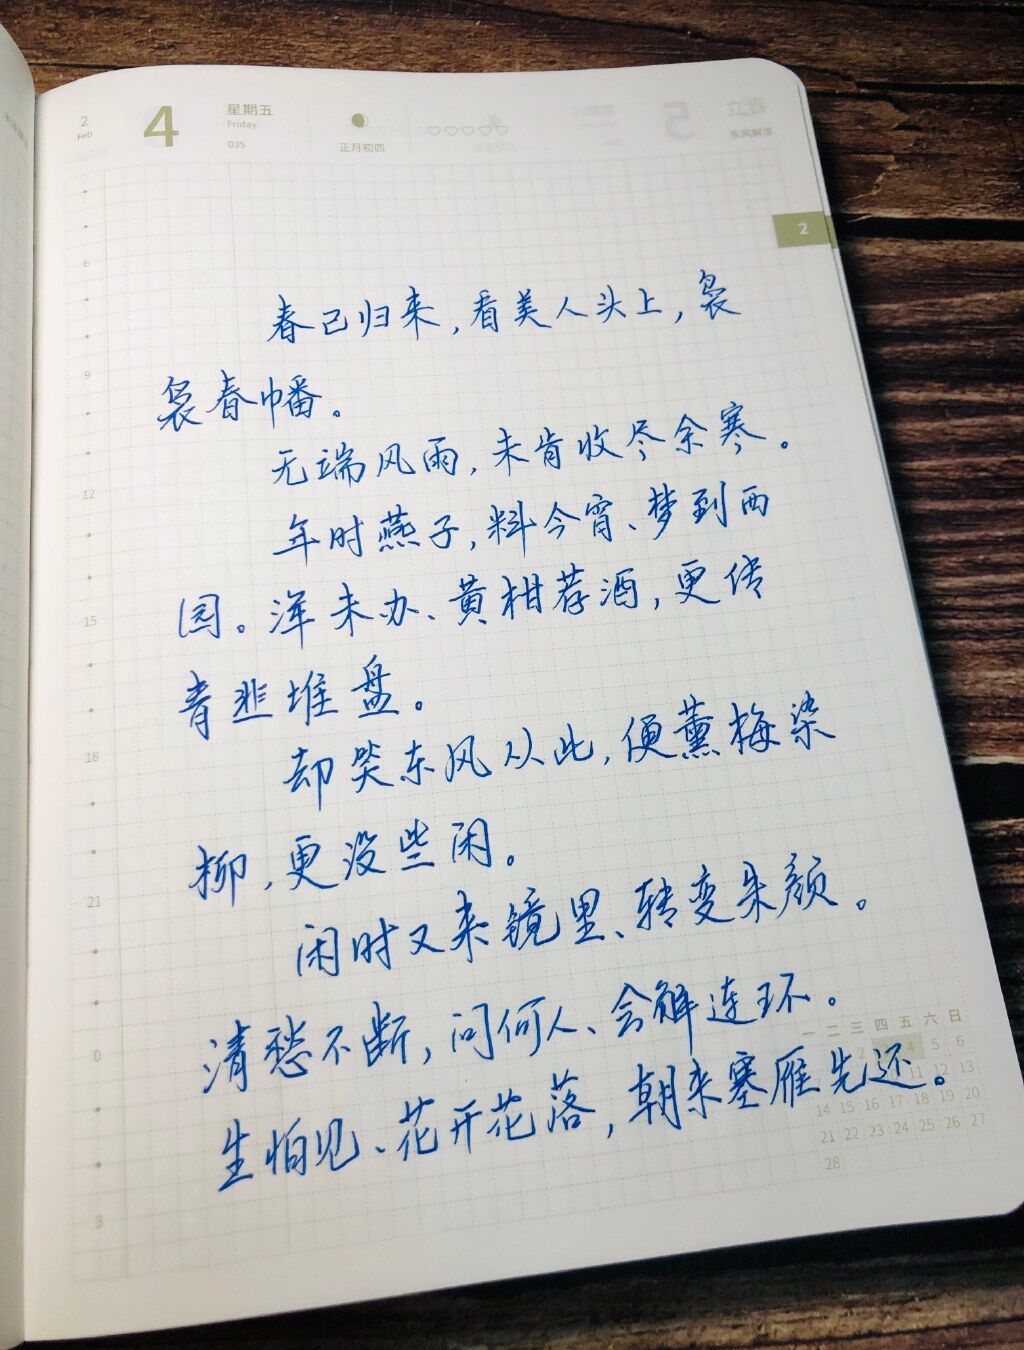 2
Feb
4
星期五
Friday
035
正月初四
立春
东风解冻
5
2
6
9
12
15
18
21
0
3
春已归来,看美人头上,袅
袅春幡。
无端风雨,未肯收尽余寒。
年时燕子,料今宵、梦到西
园。浑未办、黄柑荐酒,更传
青韭堆盘。
却笑东风从此,便薰梅染
柳,更没些闲。
闲时又来镜里、转变朱颜。
清愁不断,问何人、会解连环。
生怕见、花开花落,朝来塞雁先还。
一 二 三 四 五 六 日
2 4 5 6
11 12 13
14 15 16 17 18 19 20
21 22 23 24 25 26 27
28